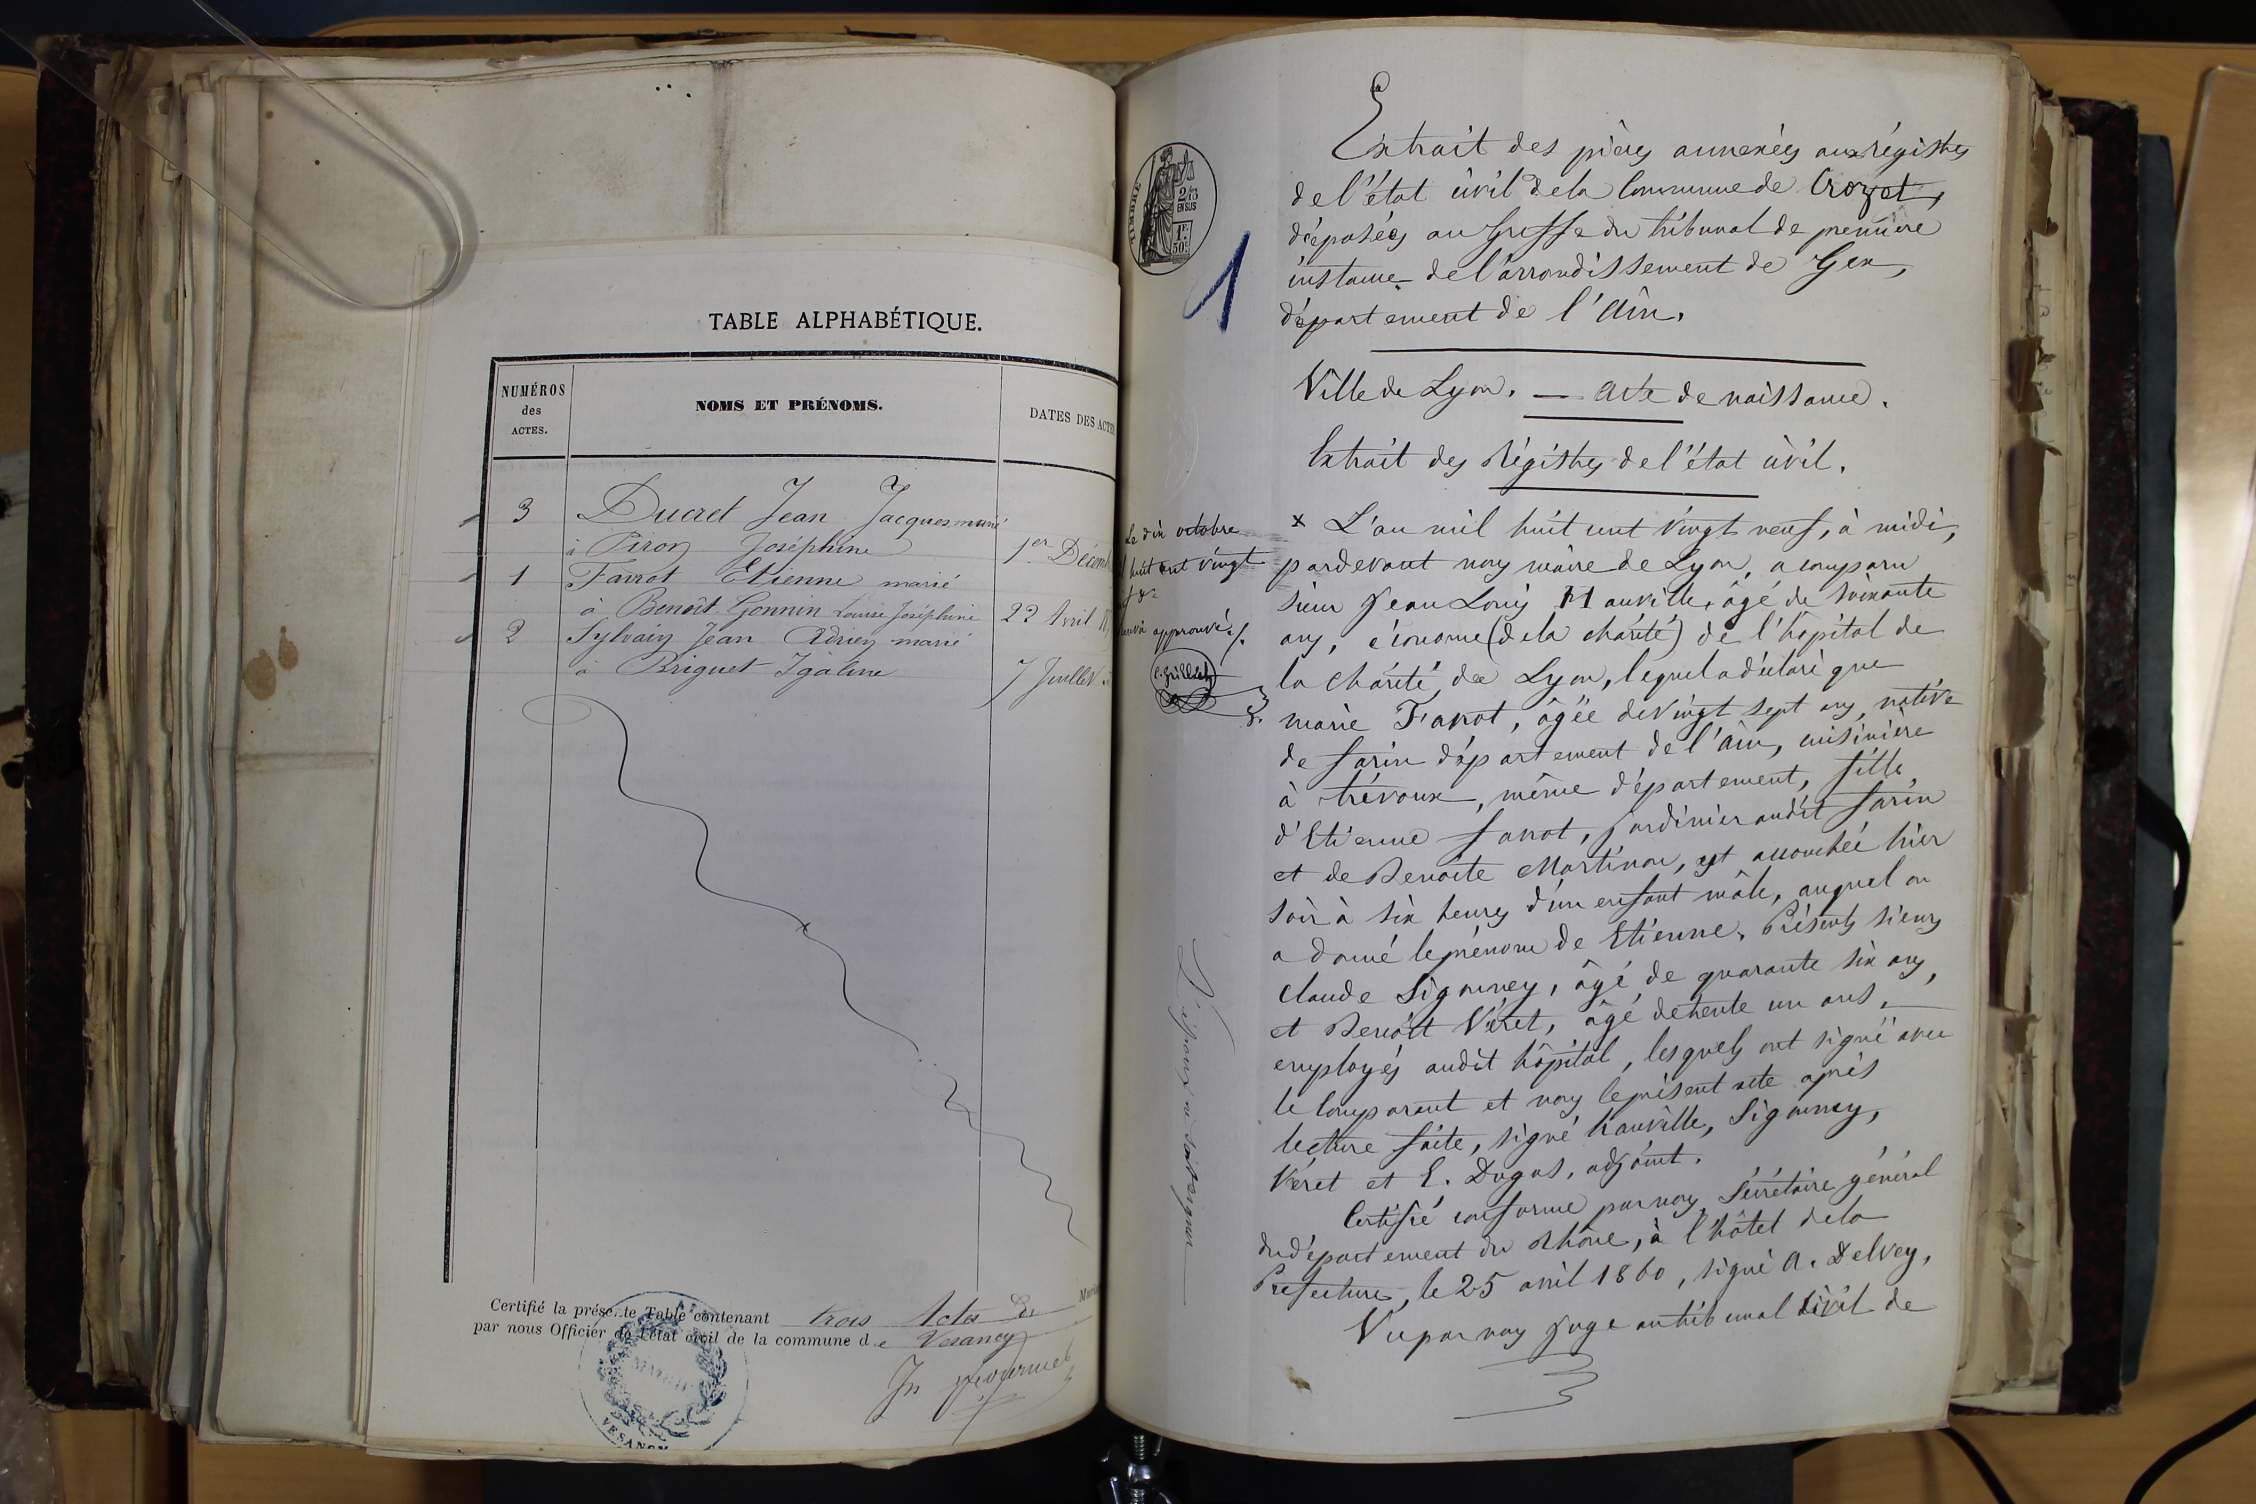 TABLE ALPHABÉTIQUE.
NUMÉROS
des
ACTES.
NOMS ET PRÉNOMS.
DATES DES ACTES
3 Ducret Jean Jacques marié
à Piron Joséphine 1er Décemb
1 Favrot Etienne marié
à Benoît-Gonnin Louise Joséphine 22 Avril
2 Sylvain Jean Adrien marié
à Briguet Igaline 7 Juillet
Certifié la présente Table contenant trois Actes de
par nous Officier de l'état civil de la commune de Vesancy
VESANCY
TIMBRE
2/10
EN SUS
1F
50C
1
Extrait des pièces annexées aux régistres
de l'état civil de la Commune de Crozet,
déposées au Greffe du tribunal de première
instance de l'arrondissement de Gex,
département de l'Ain.
Ville de Lyon. — Acte de naissance.
Extrait des Régistres de l'état civil.
Le dix octobre
huit cent vingt
approuvé
x L'an mil huit cent vingt neuf, à midi,
pardevant nous maire de Lyon, a comparu
sieur Jean Louis Hauville, âgé de soixante
ans, économe (de la charité) de l'hôpital de
la charité de Lyon, lequel a déclaré que
marie Favrot, âgée de vingt sept ans, native
de farin département de l'ain, cuisinière
à trévoux, même département, fille
d'Etienne favrot, jardinier audit farin
et de Benoite Martinon, est accouchée hier
soir à six heures d'un enfant mâle, auquel on
a donné le prénom de Etienne. Présents sieurs
Claude Sigourney, âgé de quarante six ans,
et Benoît Véret, âgé de trente un ans,
employés audit hôpital, lesquels ont signé avec
le comparant et nous le présent acte après
lecture faite, signé hauville, Sigourney,
Véret et E. Dugas, adjoint.
Certifié conforme par nous Sécrétaire général
du département du Rhône, à l'hôtel de la
Préfecture, le 25 avril 1860, signé A. Delvey.
Vu par nous Juge au tribunal civil de